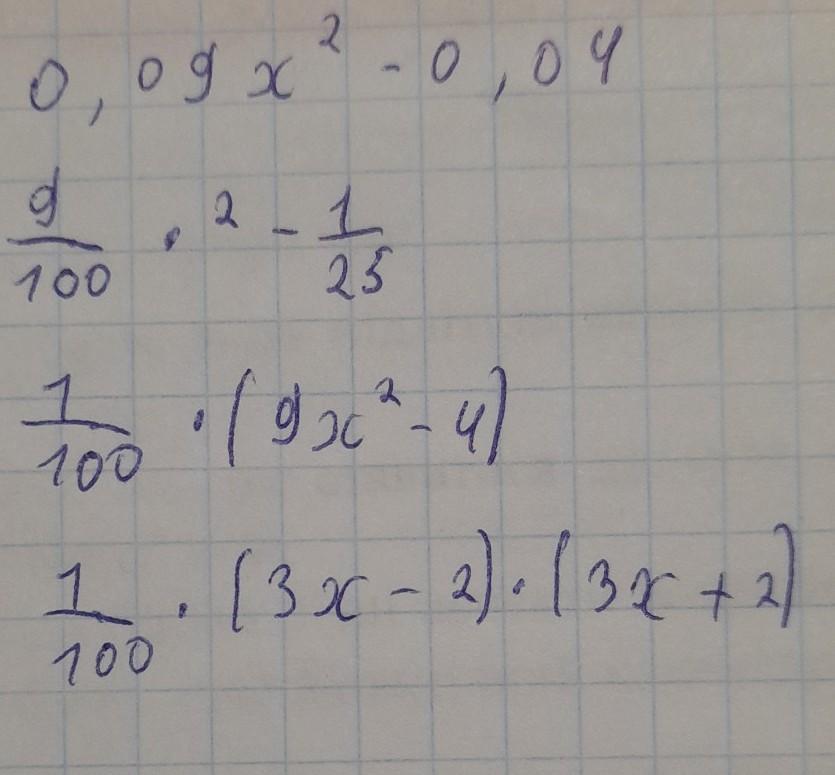 0,09x² - 0,04
9/100 · ² - 1/25
1/100 · (9x² - 4)
1/100 · (3x - 2) · (3x + 2)